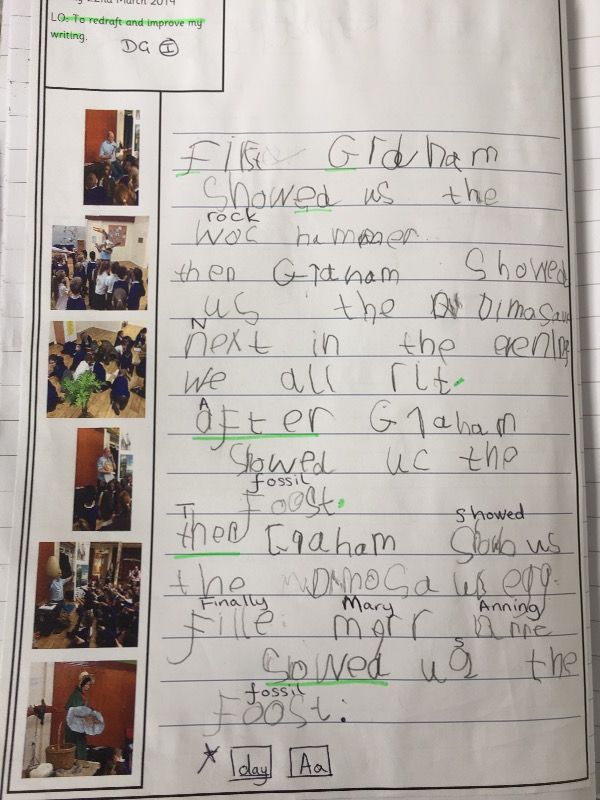 22nd March 2019
LO: To redraft and improve my
writing.
DG I
First Graham
Showed us the
rock
woc hammer
then Graham Showed
us the Dimasaw
N
next in the evening
we all rit.
A
after Graham
Slowed uc the
fossil
Foost.
T showed
then Graham Show us
the egg.
Finally Mary Anning
Fille marr Anne
s
Sowed ug the
fossil
Foost.
day Aa